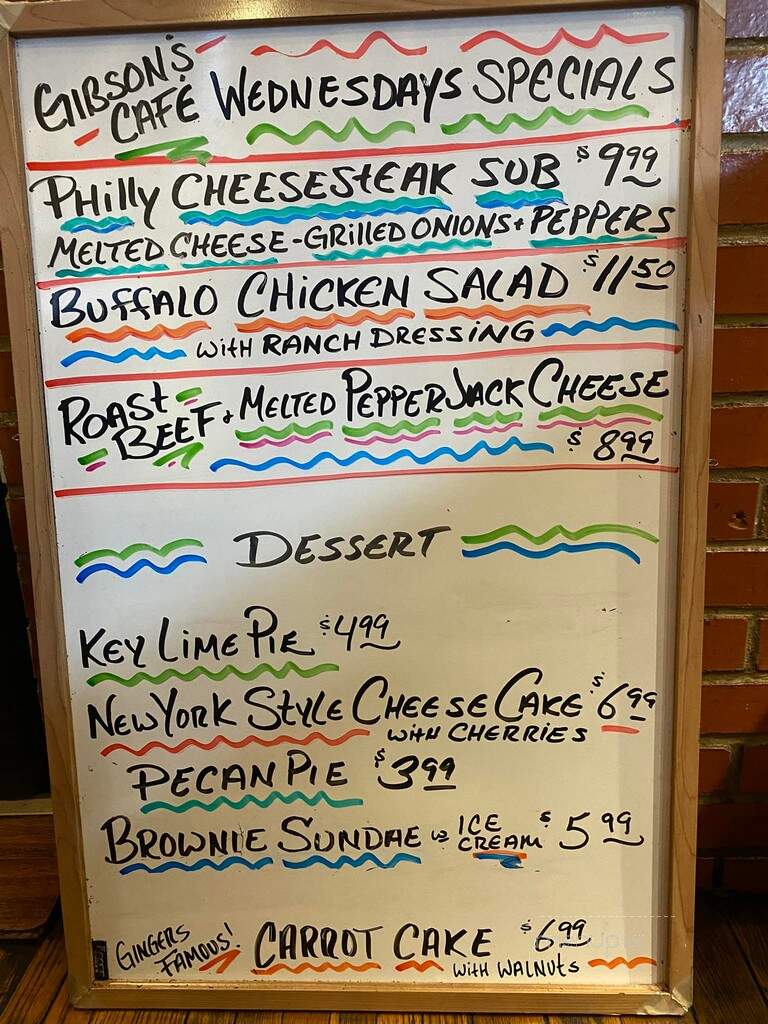 GIBSON'S CAFÉ WEDNESDAYS SPECIALS
PHILLY CHEESESTEAK SUB $9.99
MELTED CHEESE - GRILLED ONIONS + PEPPERS
BUFFALO CHICKEN SALAD $11.50
WITH RANCH DRESSING
ROAST BEEF + MELTED PEPPER JACK CHEESE
$8.99
DESSERT
KEY LIME PIE $4.99
NEW YORK STYLE CHEESE CAKE $6.99
WITH CHERRIES
PECAN PIE $3.99
BROWNIE SUNDAE w ICE CREAM $5.99
GINGERS FAMOUS! CARROT CAKE $6.99
WITH WALNUTS